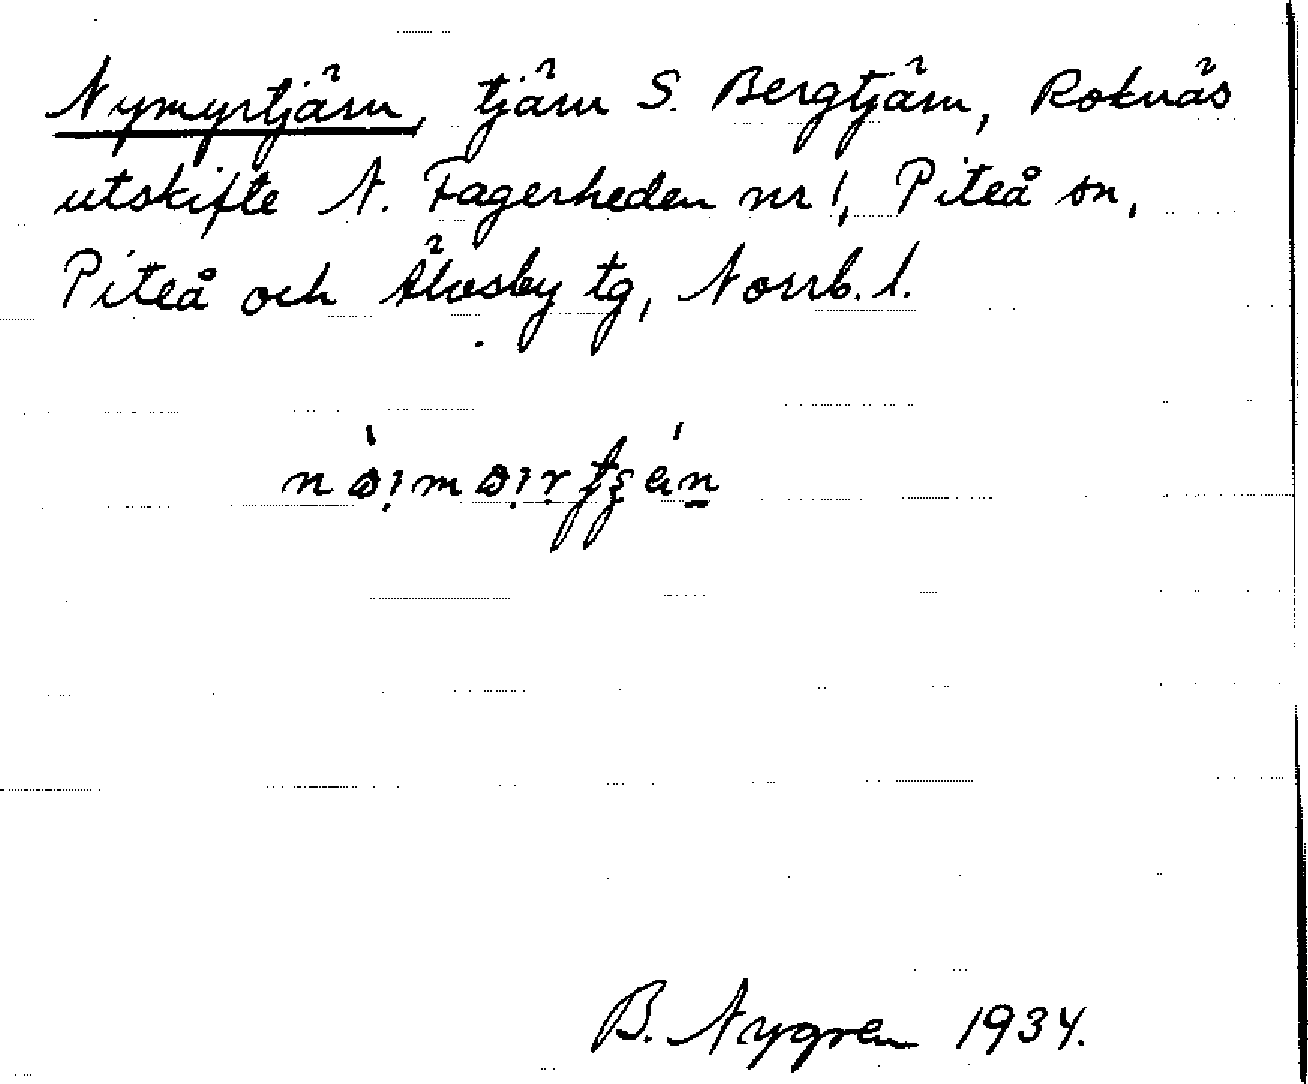 Nymyrtjärn, tjärn S. Bergtjärn, Roknäs
utskifte N. Fagerheden nr 1, Piteå sn,
Piteå och Älvsby tg, Norrb. l.
B. Nygren 1934.